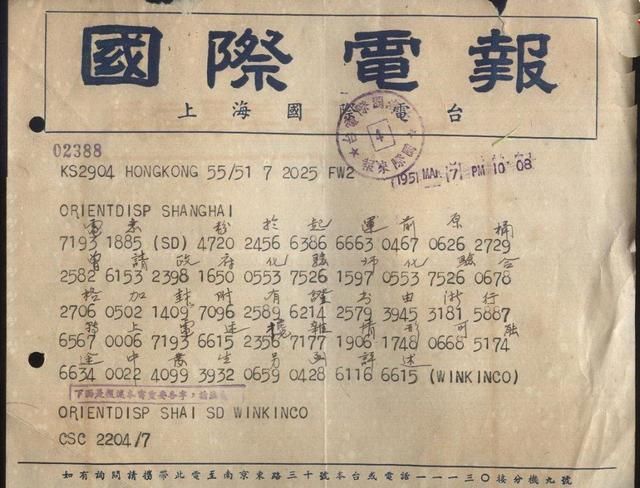 國際電報
上海國際電台
02388
KS2904 HONGKONG 55/51 7 2025 FW2
1951 MAR (7) PM 10 08
ORIENTDISP SHANGHAI
電悉粉於起運前原桶
7193 1885 (SD) 4720 2456 6386 6663 0467 0626 2729
曾請政府化驗師化驗合
2582 6153 2398 1650 0553 7526 1597 0553 7526 0678
格加時有證書由行
2706 0502 1409 7096 2589 6214 2579 3945 3181 5887
上電述攙雜情形可
6567 0006 7193 6615 2356 7177 1906 1748 0668 5174
途中發生另函詳述
6634 0022 4099 3932 0659 0428 6116 6615 (WINKINCO)
ORIENTDISP SHAI SD WINKINCO
CSC 2204/7
如有詢問請攜帶此電至南京東路三十號本台或電話一一一三〇接分機九號